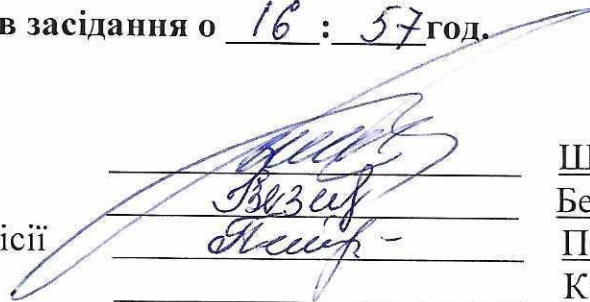 в засідання о 16 : 57 год.
Ш
Бе
ісії П
К